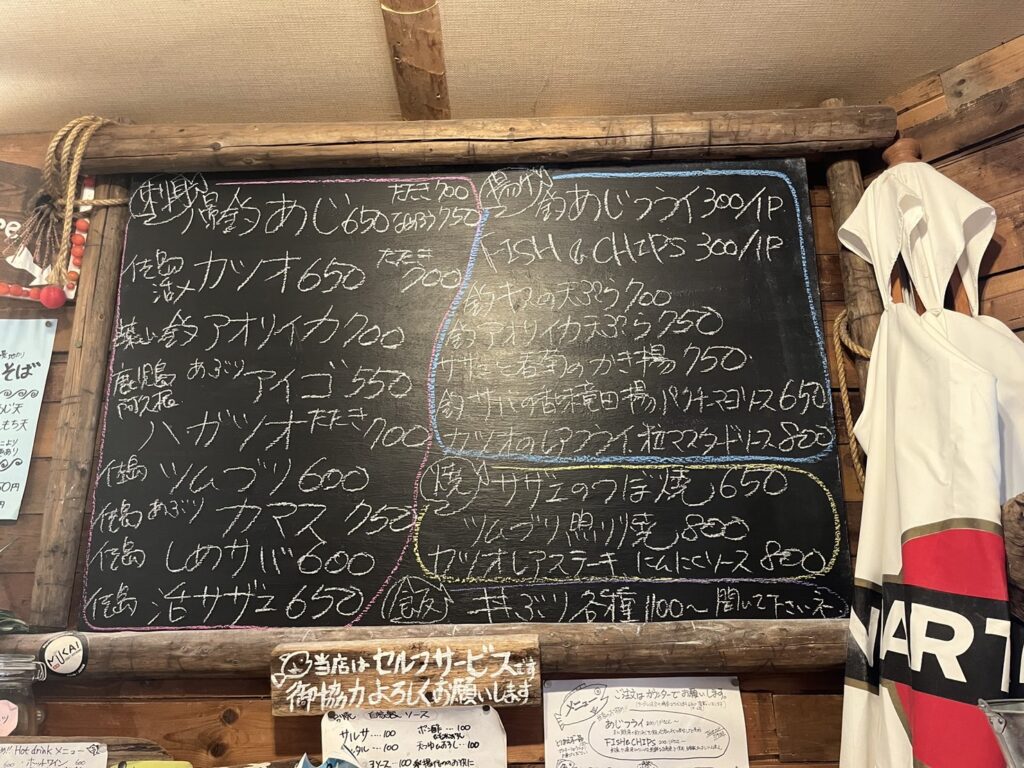 刺身
釣あじ650 たたき700
なめろう750
佐島 活〆 カツオ650 たたき 700
葉山 釣 アオリイカ700
鹿児島 阿久根 あぶり アイゴ 550
ハガツオ たたき 700
佐島 ツムブリ 600
佐島 あぶり カマス 750
佐島 しめサバ600
佐島 活サザエ 650
揚げ 釣あじフライ 300/1P.
FISH & CHIPS 300/1P
釣 キスの天ぷら 700
釣 アオリイカ天ぷら 750
のかき揚 750
釣 サバの香味竜田揚 パクチーマヨソース 650
カツオのレアフライ 粒マスタードソース 800
焼 サザエのつぼ焼 650
ツムブリ 照リ焼 800
カツオレアステーキ にんにくソース 800
飯 丼ぶり 各種 1100〜 聞いて下さいネ
当店は セルフサービスです
御協力よろしくお願いします
MIKAI
そば
あじ天
もち天
ソース
サルサ....100
タルタル....100
ポン酢...100
100
Hot drink メニュー
・ホットワイン
メニュー
ご注文はカウンターでお願いします。
あじフライ
FISH&CHIPS
MART